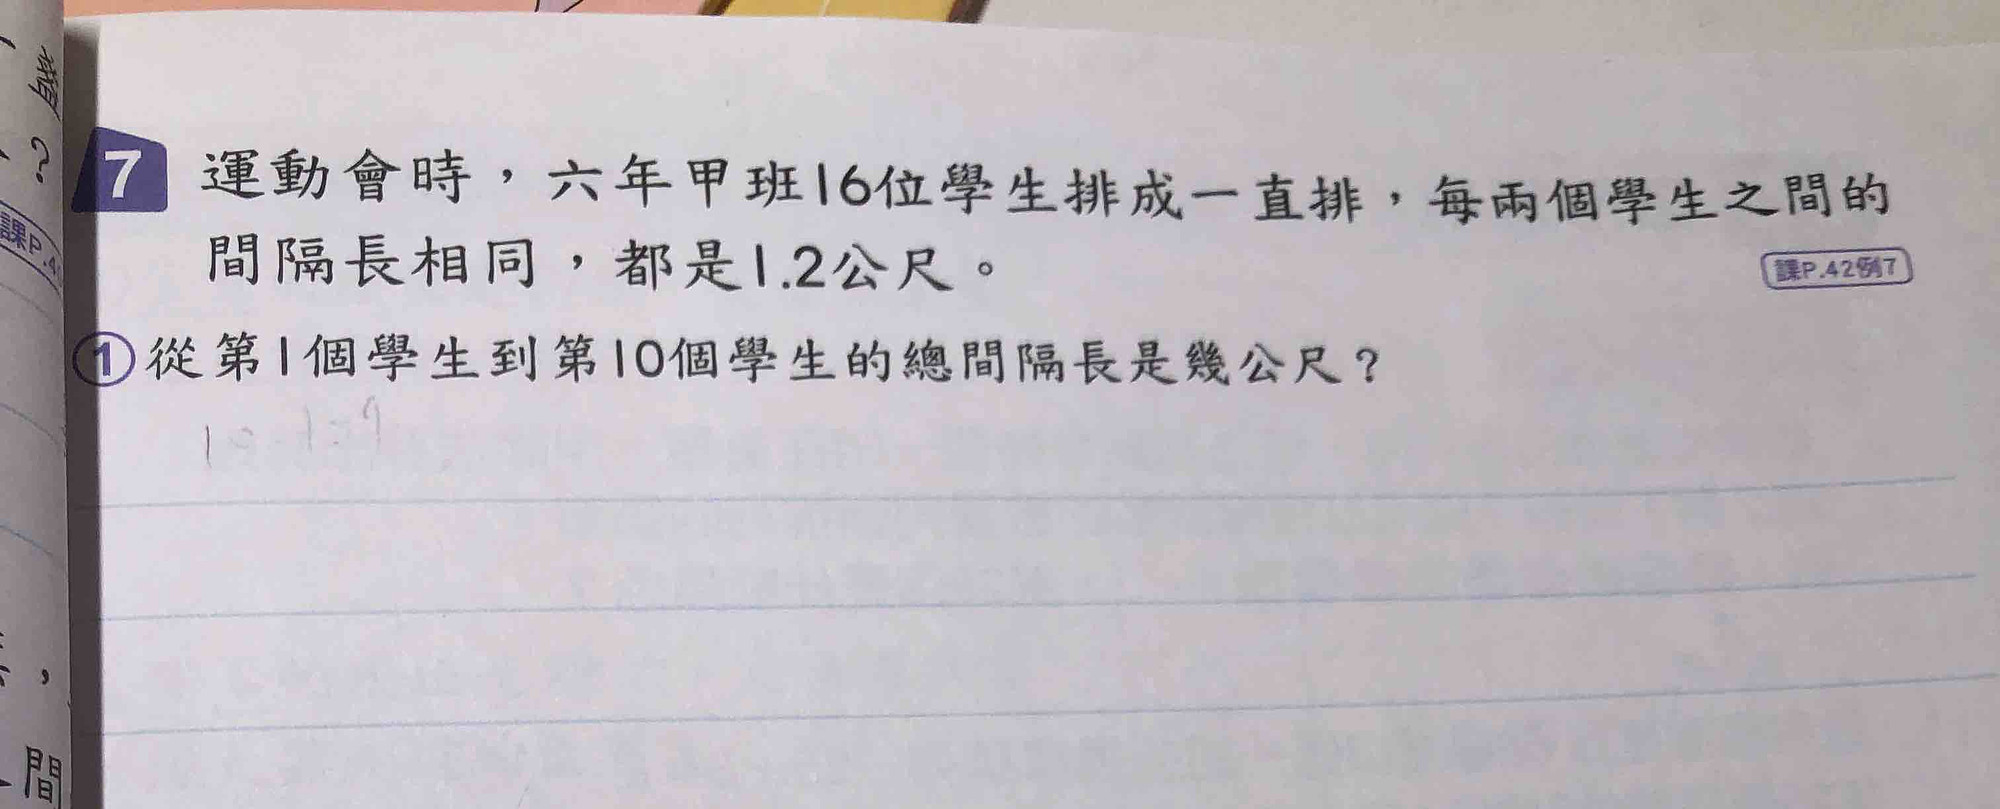 7 運動會時，六年甲班16位學生排成一直排，每兩個學生之間的
間隔長相同，都是1.2公尺。
課P.42例7
①從第1個學生到第10個學生的總間隔長是幾公尺？
？
課P.4
，
間